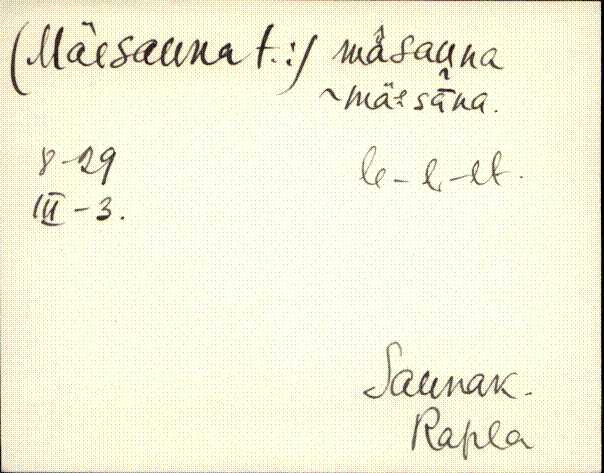 (Mäesauna t.:) mäsauna
~mäesāna.
8-29
le-l-lt.
III-3.
Saunak.
Rapla